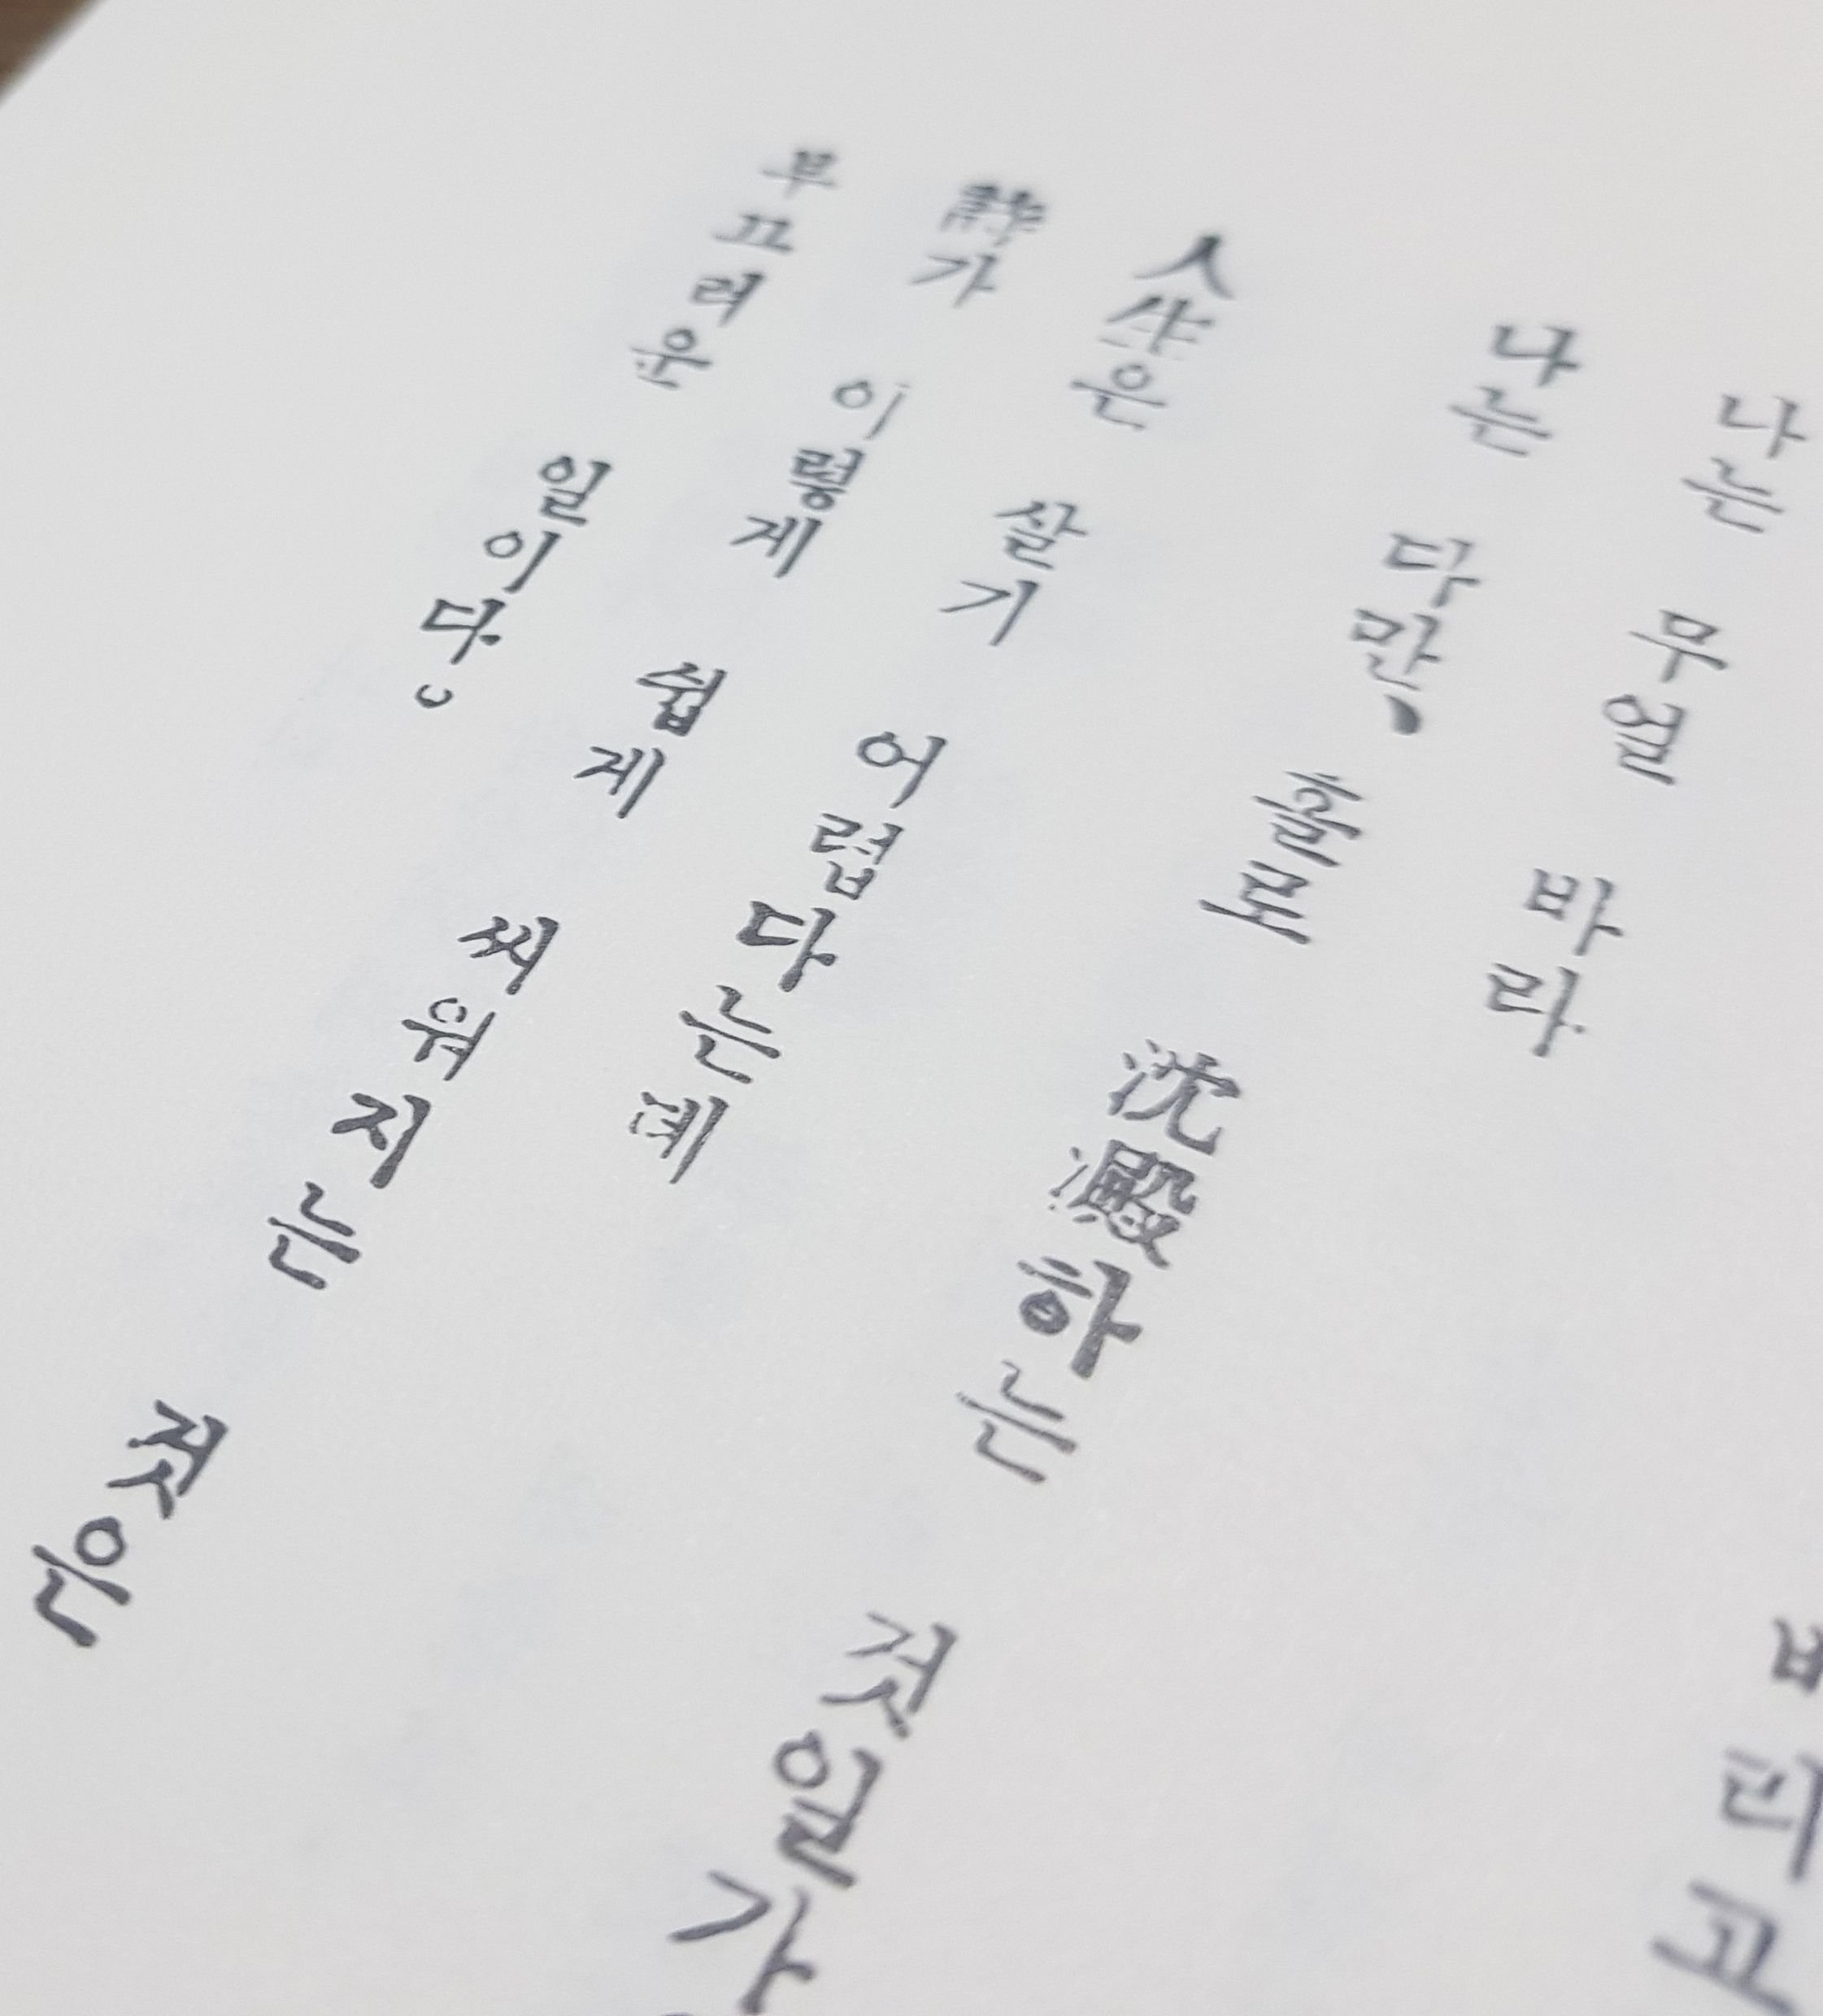 나는 무얼 바라
나는 다만、 홀로 沈澱하는 것일가
人生은 살기 어렵다는데
詩가 이렇게 쉽게 씨워지는 것은
부끄러운 일이다。